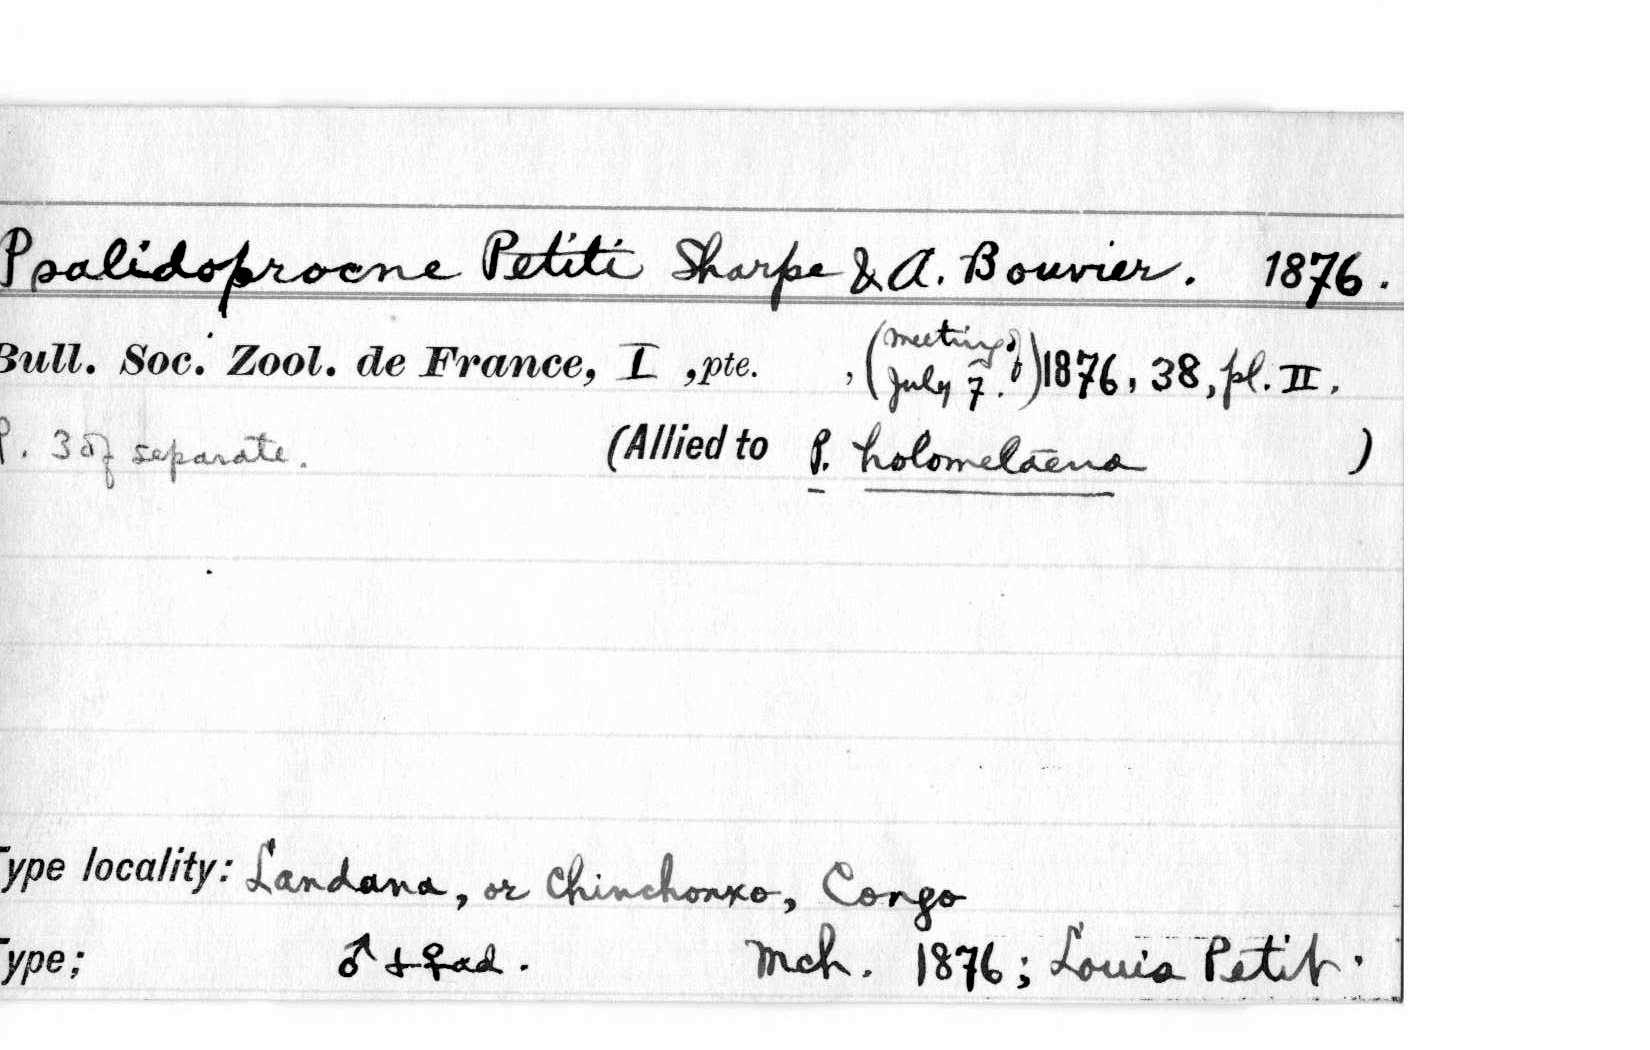 Psalidoprocne Petiti Sharpe & A. Bouvier. 1876.
Bull. Soc. Zool. de France, I, pte. , (meeting of July 7.) 1876, 38, pl. II.
P. 3 of separate. (Allied to P. holomelaena )
Type locality: Landana, or Chinchonxo, Congo
Type; ♂ & ♀ ad. Mch. 1876; Louis Petit.